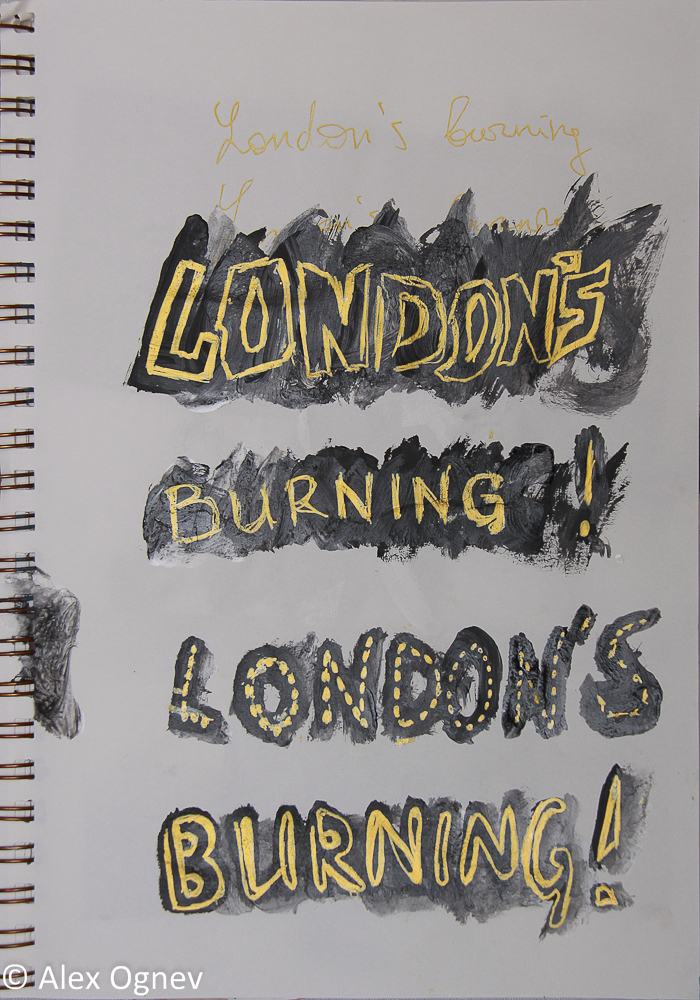 London's burning
LONDON'S
BURNING !
LONDON'S
BURNING!
© Alex Ognev